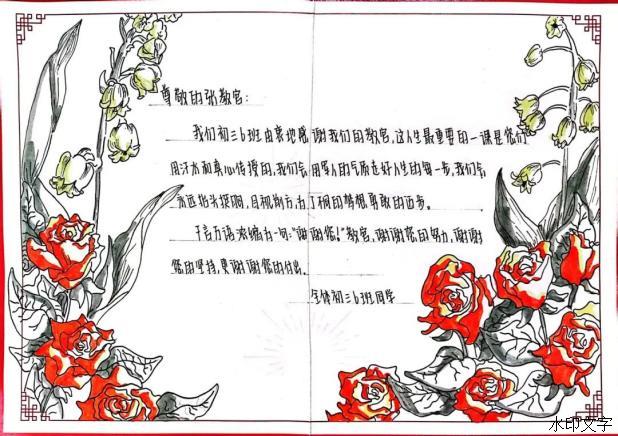 尊敬的张教官:
我们初三6班由衷地感谢我们的教官,这人生最重要的一课是您们
用汗水和真心传授的,我们会用军人的气质走好人生的每一步,我们会
永远抬头挺胸,目视前方,为了祖国的梦想勇敢的迈步。
千言万语浓缩为一句:"谢谢您!"教官,谢谢您的努力,谢谢
您的坚持,更谢谢您的付出。
全体初三6班同学
水印文字